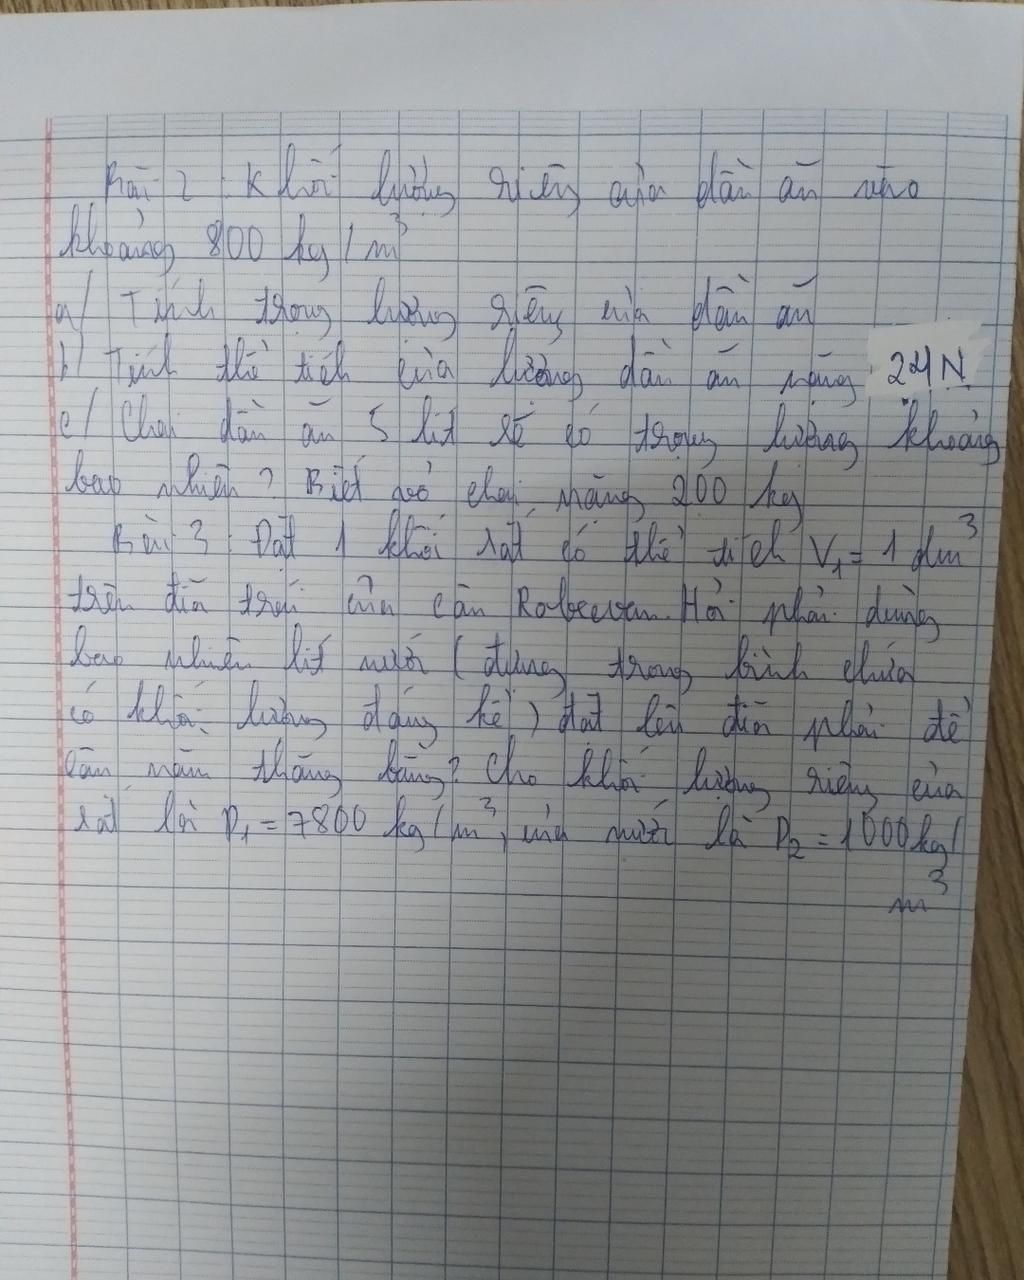 Bài 2 : Khối lượng riêng của dầu ăn vào
khoảng 800 kg/m³
a/ Tính trọng lượng riêng của dầu ăn
b/ Tính thể tích của lượng dầu ăn nặng 24N
c/ Chai dầu ăn 5 lít sẽ có trọng lượng khoảng
bao nhiêu? Biết vỏ chai nặng 200 kg
Bài 3 : Đặt 1 khối sắt có thể tích V₁ = 1 dm³
trên đĩa trái của cân Robecvan. Hỏi phải dùng
bao nhiêu lít nước (đựng trong bình chứa
có khối lượng đáng kể) đặt lên đĩa phải để
cân nằm thăng bằng? Cho khối lượng riêng của
sắt là D₁ = 7800 kg/m³, của nước là D₂ = 1000 kg/
m³